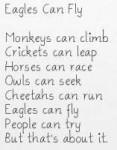 Eagles Can Fly
Monkeys can climb
Crickets can leap
Horses can race
Owls can seek
Cheetahs can run
Eagles can fly
People can try
But that's about it.